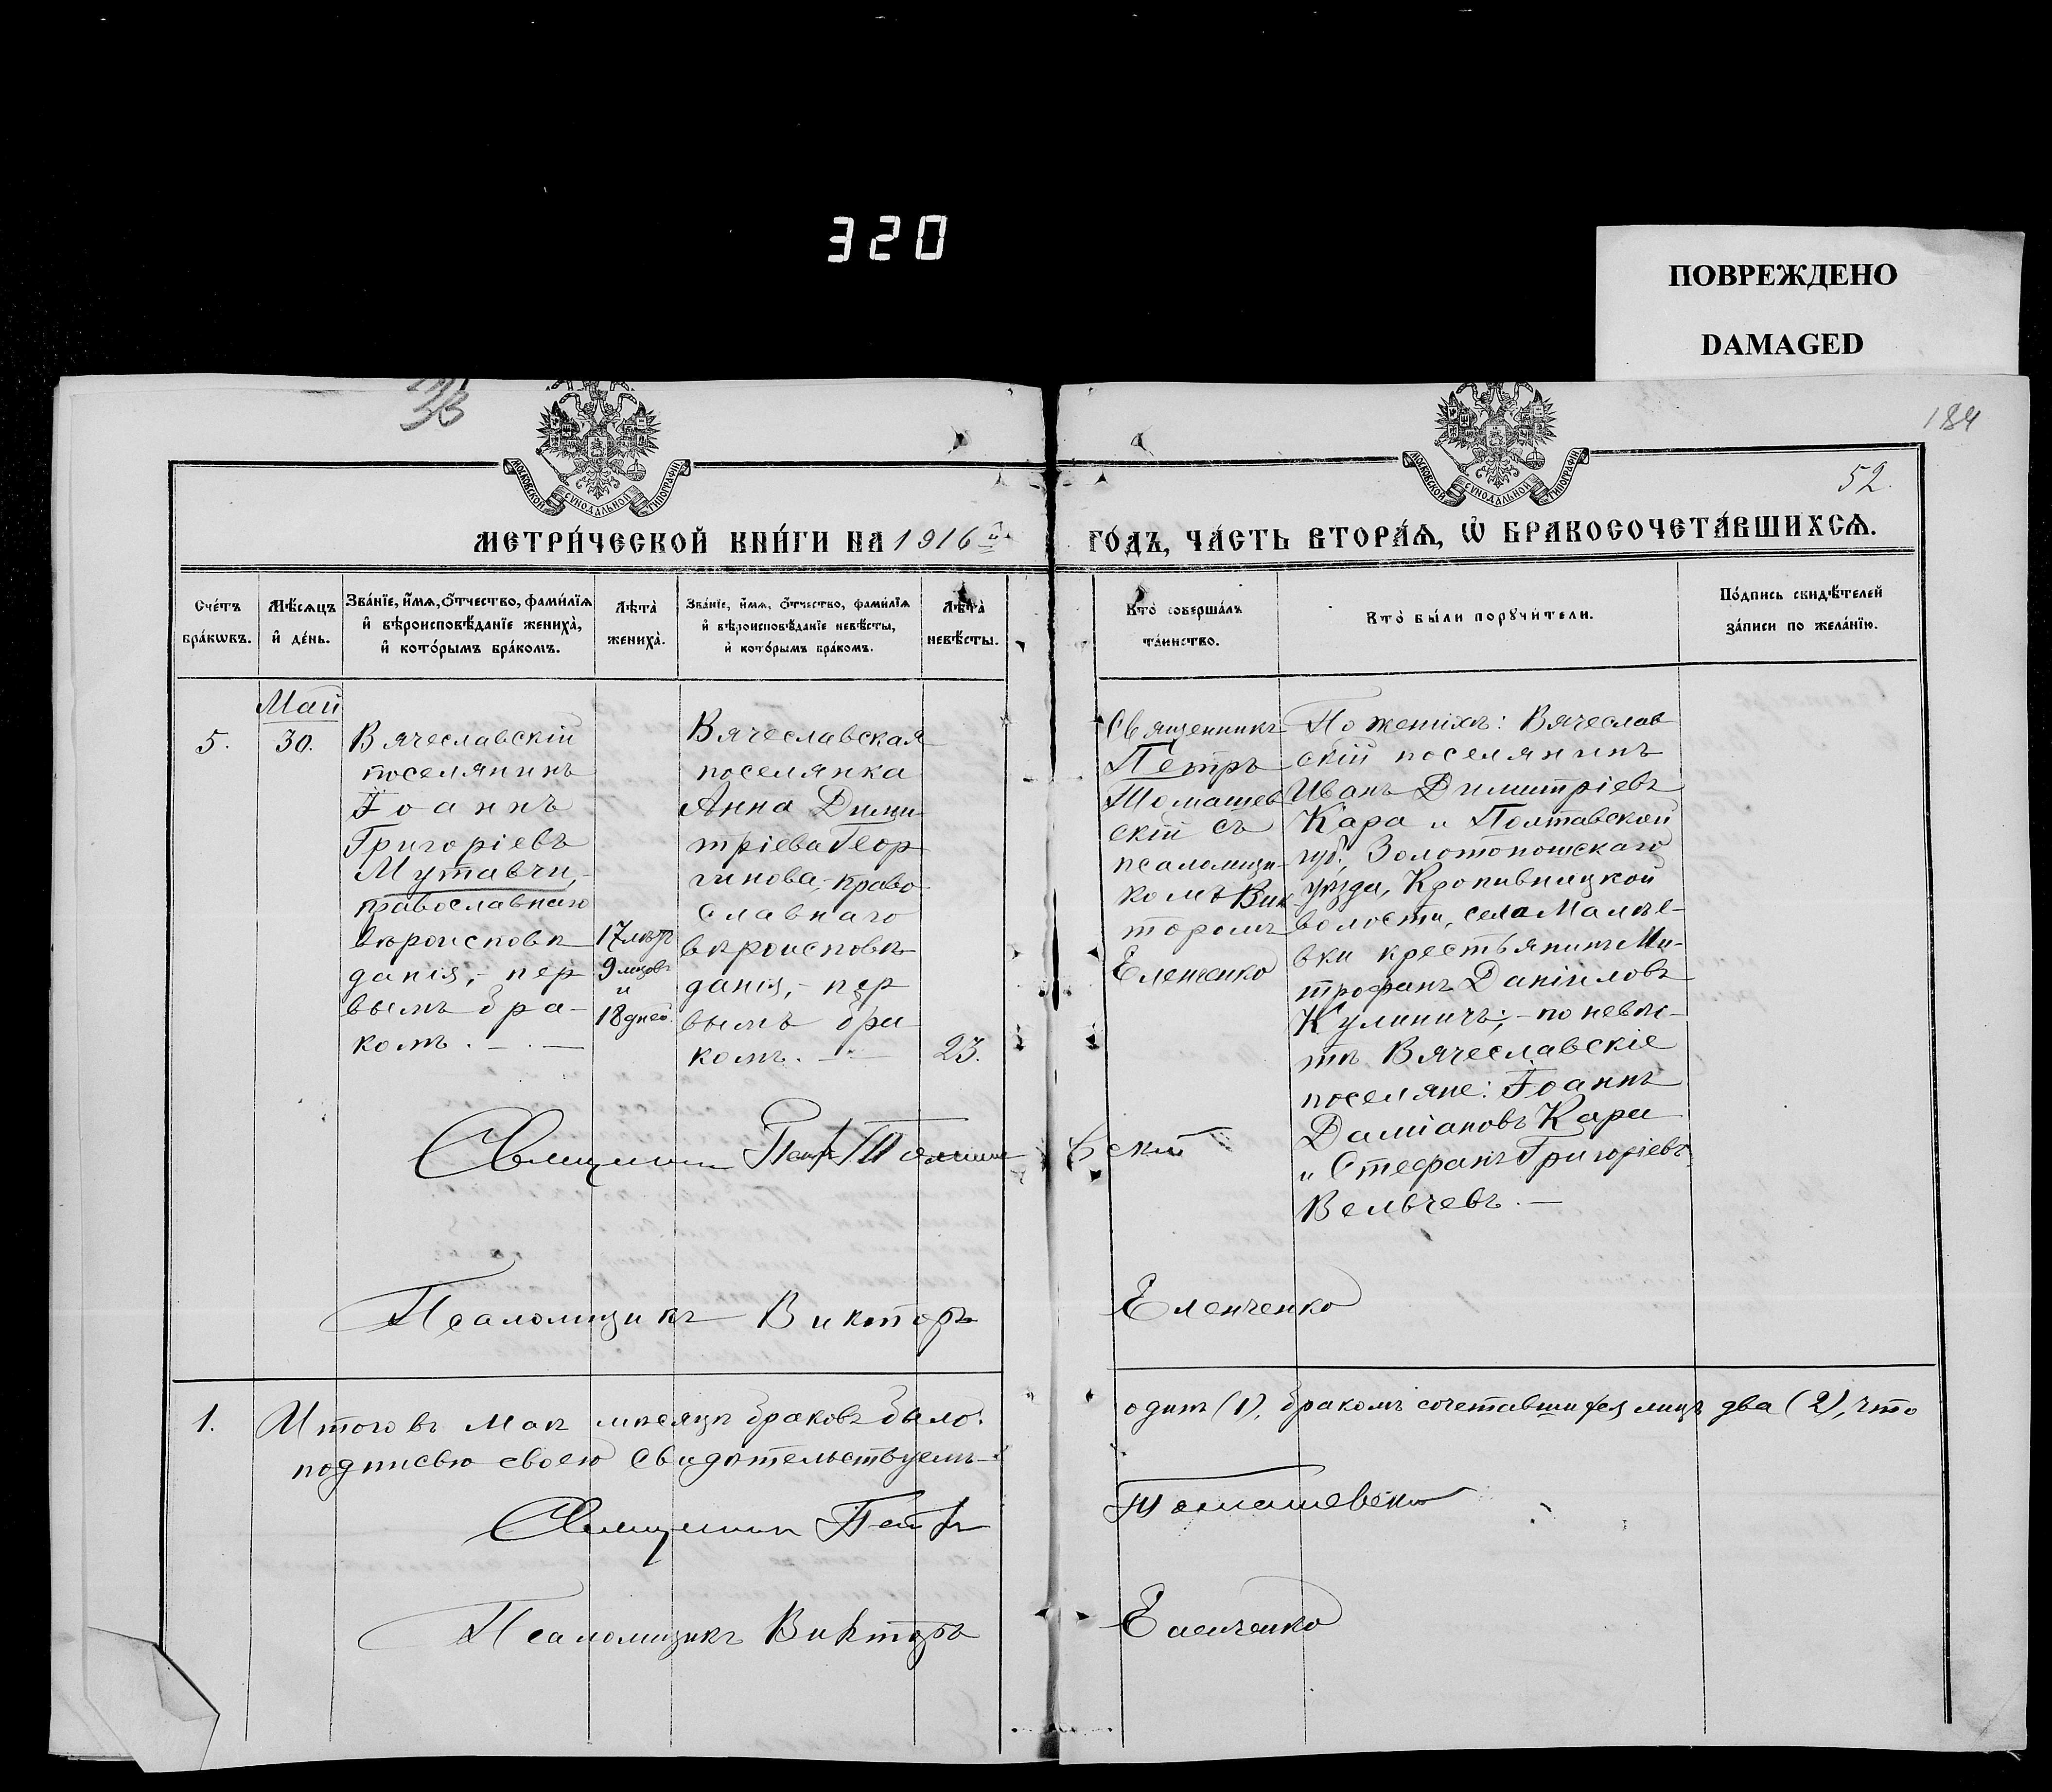 320
ПОВРЕЖДЕНО
DAMAGED
184
52.
МОСКОВСКОЙ СѴНОДАЛЬНОЙ ТИПОГРАФІИ
МОСКОВСКОЙ СѴНОДАЛЬНОЙ ТИПОГРАФІИ
МЕТРИ́ЧЕСКОЙ КНИ́ГИ НА 1916 й
ГО́ДЪ, ЧА́СТЬ ВТОРА́Ѧ, Ѡ҆ БРАКОСОЧЕТА́ВШИХСѦ.
Сче́тъ
бра́кѡвъ.
Мѣ́сѧцъ
и҆ де́нь.
Зва́нїе, и҆́мѧ, ѻ҆́тчество, фами́лїѧ
и҆ вѣроисповѣ́данїе жениха̀,
и҆ кото́рымъ бра́комъ.
Лѣта̀
жениха̀.
Зва́нїе, и҆́мѧ, ѻ҆́тчество, фами́лїѧ
и҆ вѣроисповѣ́данїе невѣ́сты,
и҆ кото́рымъ бра́комъ.
Лѣта̀
невѣ́сты.
Кто̀ соверша́лъ
та́инство.
Кто̀ бы́ли порꙋчи́тели.
По́дпись свидѣ́телей
за́писи по жела́нїю.
5.
Май
30.
Вячеславскій
поселянинъ
Іоаннъ
Григоріевъ
Мутавчи,-
православнаго
вѣроисповѣ
данія,- пер
вымъ бра-
комъ. — . —
17 лѣтъ
9 мѣсцовъ
и
18 дней.
Вячеславская
поселянка
Анна Дими
тріева Геор
гинова,- право
славнаго
вѣроисповѣ
данія,- пер
вымъ бра
комъ. —
23.
Священникъ
Петръ
Томашев
скій съ
псаломщи-
комъ Вик
торомъ
Еленченко
По женихѣ: Вячеслав
скій поселянинъ
Иванъ Димитріевъ
Кара и Полтавской
губ., Золотоношскаго
уѣзда, Кропивницкой
волости, села Мамѣе-
вки крестьянинъ Ми-
трофанъ Даніиловъ
Кулиничъ;- по невѣс-
тѣ Вячеславскіе
поселяне: Іоаннъ
Даміановъ Кара
и Стефанъ Григоріевъ
Вельчевъ. —
Священникъ Петръ Томашевскій
Псаломщикъ Викторъ Еленченко
1.
Итого въ Маѣ мѣсяцѣ браковъ было: одинъ (1), бракомъ сочетавшихся лицъ два (2), что
подписью своею свидѣтельствуемъ-
Священникъ Петръ Томашевскій
Псаломщикъ Викторъ Еленченко